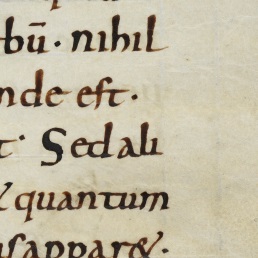 bū. nihil
nde est.
t. Sed ali
& quantum
usappar&.